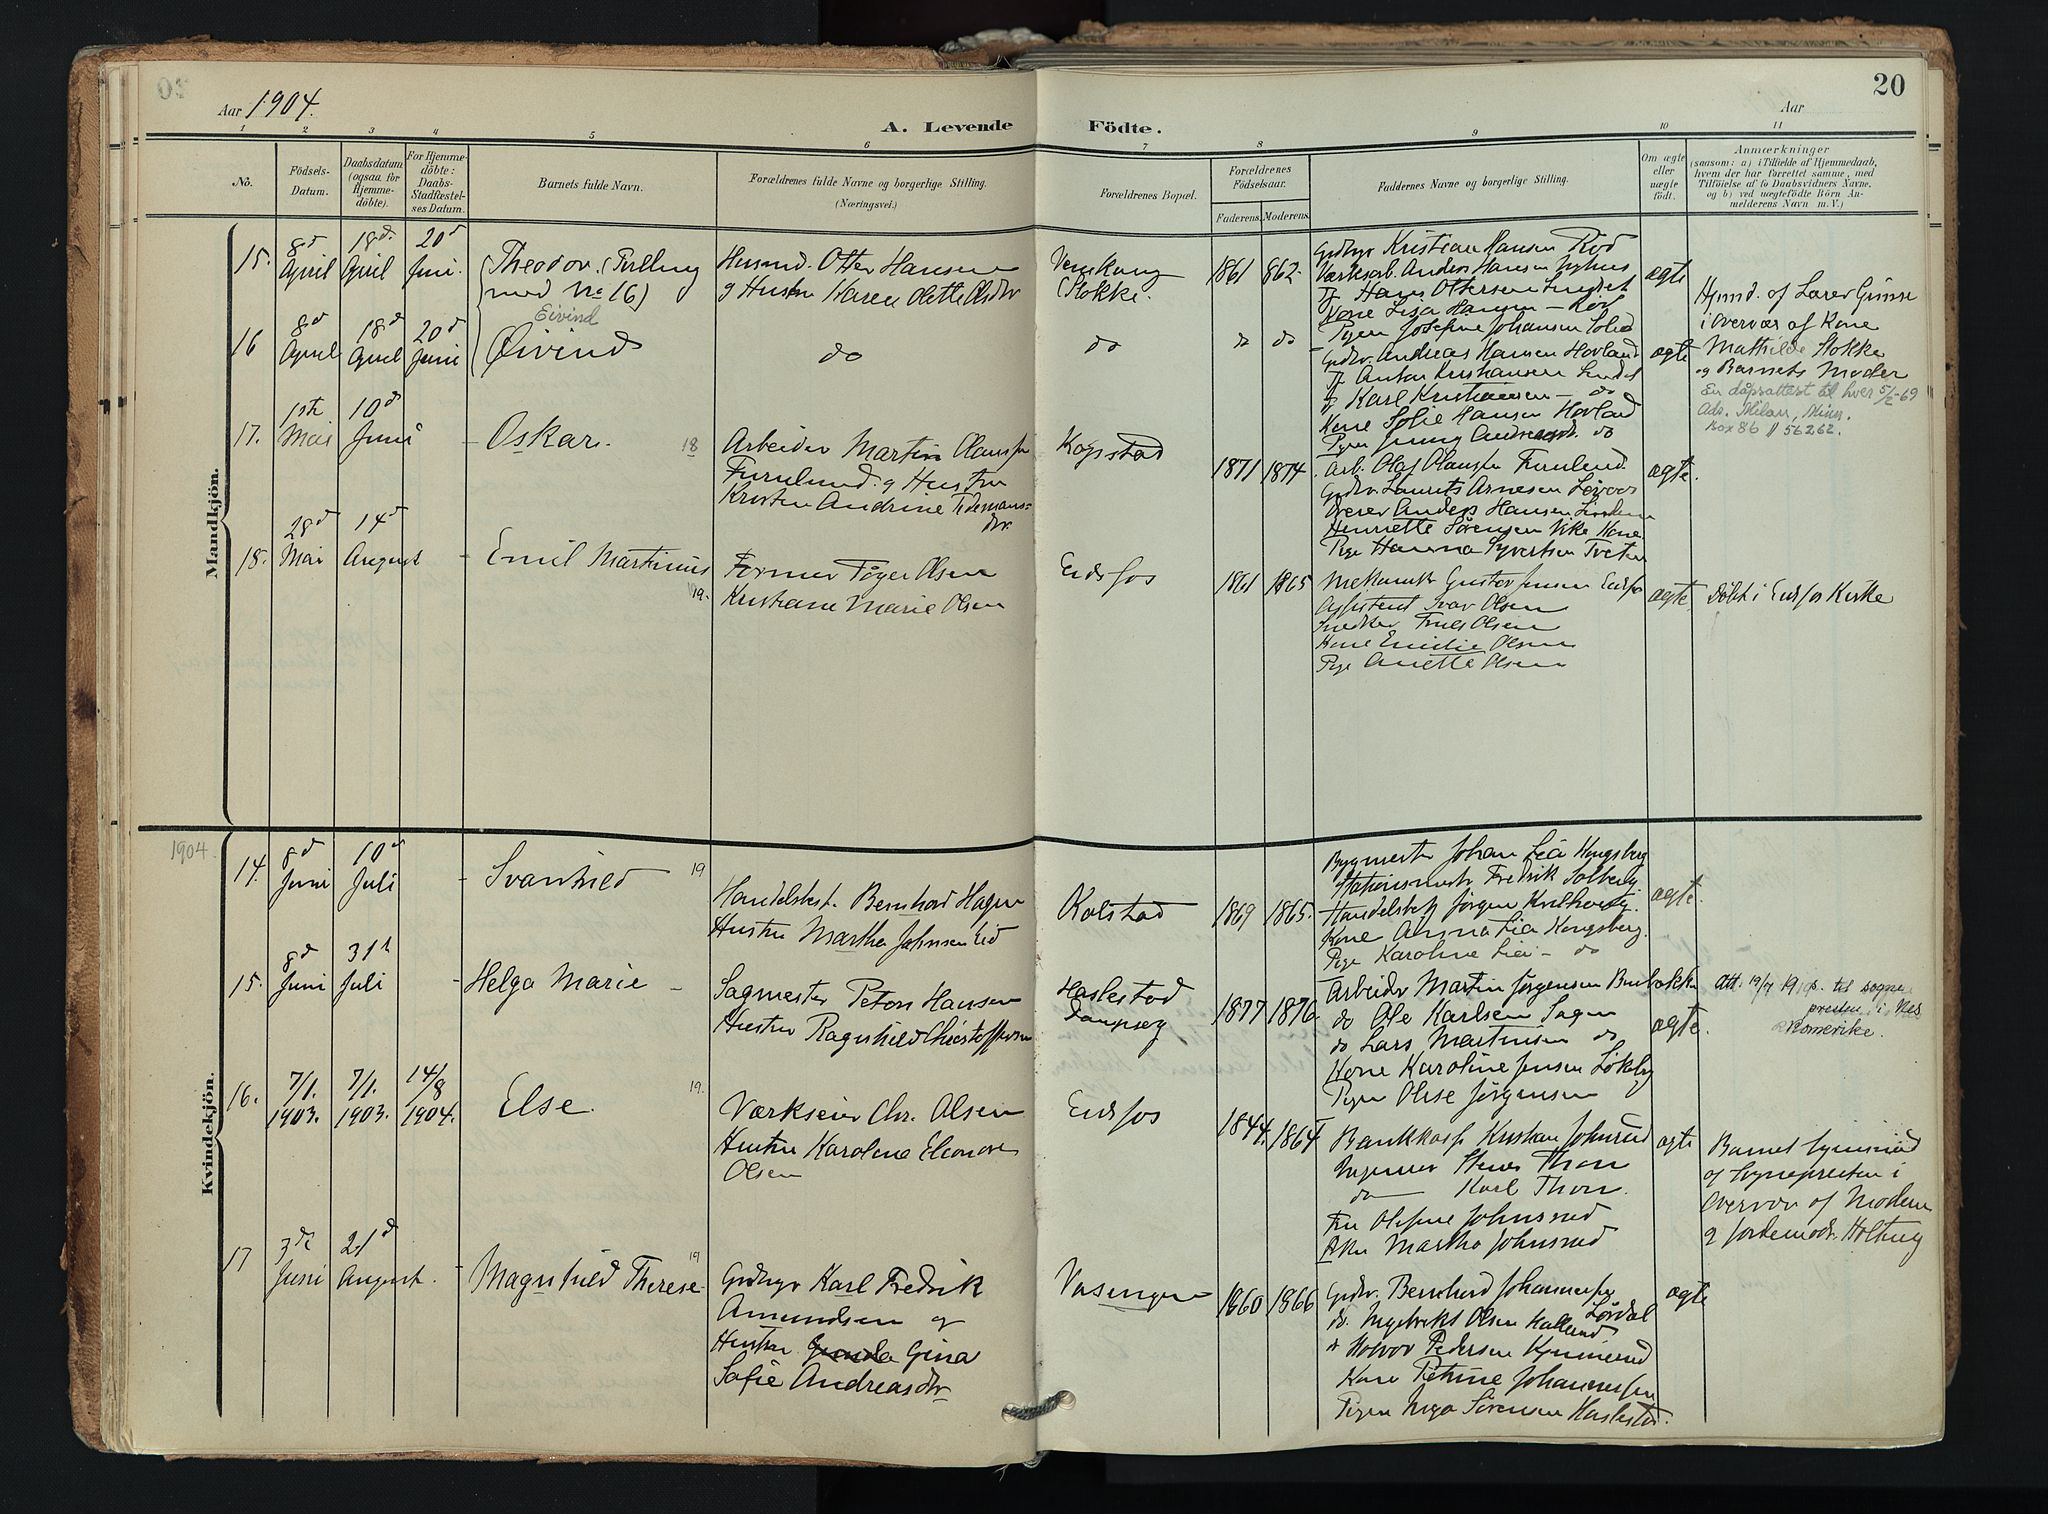 20
Aar 1904.
A. Levende Födte.
Aar
1 2 3 4 5 6 7 8 9 10 11
No.
Födsels-
Datum.
Daabsdatum
(ogsaa for
Hjemme-
döbte).
For Hjemme-
döbte:
Daabs-
Stadfæstel-
ses Datum.
Barnets fulde Navn.
Forældrenes fulde Navne og borgerlige Stilling.
(Næringsvei.)
Forældrenes Bopæl.
Forældrenes
Födselsaar.
Faderens.
Moderens.
Faddernes Navne og borgerlige Stilling.
Om ægte
eller
uægte
födt.
Anmærkninger
(saasom: a) i Tilfælde af Hjemmedaab,
hvem der har forrettet samme, med
Tilföielse af to Daabsvidners Navne,
og b) ved uægtefödte Börn An-
melderens Navn m. V.)
Mandkjön.
15.
8d
April
18d.
April
20d
Juni.
Theodor. (Tvilling
med No 16)
Husmd. Otter Hansen
g Hustru Karen Olette Olsdtr
Stokke.
1861
862.
Kristian Hansen Rød
Anders Hansen Nyhus
Hans Ottersen
Kone Lisa Hansen - Rød
Pigen Josefine Johansen
ægte
Hjmd. af Lærer
i Overvær af Kone
Mathilde Stokke
og Barnets Moder
En dåpsattest til hver 5/5-69
Box 86 // 56262.
16
8d
April
18d
April
20d
Juni
Eivind
Øivind
do
do
do
do
Gdbr. Andreas Hansen Hovland
Anton Kristiansen
Karl Kristiansen - do
Kone Sofie Hansen Hovland
Pigen Jenny Andreasdt. do
ægte
17.
1ste
Mai
10d
Juni
- Oskar.
18
Arbeider Martin Olausen
Furulund. g Hustru
Kristen Andrine Tidemans-
dtr.
Kopstad
1871
1874.
Arb. Olaf Olausen Furulund
Gdbr. Laurits Arnesen
Anders Hansen
Henriette Sørensen Vike Kone
Pige Hanna Syvertsen Tveten
ægte.
18.
28d
Mai
14d
August
- Emil Martinius
19.
Former Tøger Olsen
Kristiane Marie Olsen
Eidsfos
1861
1865
Gustav Jensen Eidsfos
Assistent Ivar Olsen
Snedker Olsen
Kone Emilie Olsen
Pige Anette Olsen
ægte
Døbt i Eidsfos Kirke
1904.
Kvindekjön.
14.
8d
Juni
10d
Juli
- Svanhild
19
Handelsbest. Bernhard Hagen
Hustru Martha Johnsen Eid
Kolstad
1869
1865.
Bygmester Johan Lia Kongsberg
Stationsmester Fredrik Solberg
Jørgen
Kone Anna Lia Kongsberg.
Pige Karoline Lia - do
ægte.
15.
8d
Juni
31te
Juli
- Helga Marie -
Sagmester Hansen
Hustru Ragnhild Christoffersen
Haslestad
Dampsag
1877
1876.
Arbeider Martin Jørgensen
do Ole Karlsen Sagen
do Lars Martinsen do
Kone Karoline Jensen Løkeby
Pigen Olise Jørgensen
ægte.
til sogne
presten i Nes
Romerike.
16.
7/1.
1903.
7/1.
1903.
14/8
1904.
Else.
19.
Værkseier Chr. Olsen
Hustru Karoline Eleonore
Olsen
Eidsfos
1844.
1864
Kristian Johnsrud
Ingeniør Thon
do - Karl Thon.
Fru Johnsrud
Martha Johnsrud
ægte
Barnet hjemdøbt
af Sognepresten i
Overvær af Moderen
g Jordemodr. Holtung
17
3die
Juni
21d
August.
- Magnhild Therese
19
Karl Fredrik
Amundsen og
Hustru Gina
Sofie Andreasdtr
Vasengen
1860
1866
Gdbr. Bernhard Johannessen
Lørdal
do. Ingebrekt Olsen
Halvor Pedersen
Kone Petrine Johannessen
Pigen Inga Sørensen Haslestad.
ægte